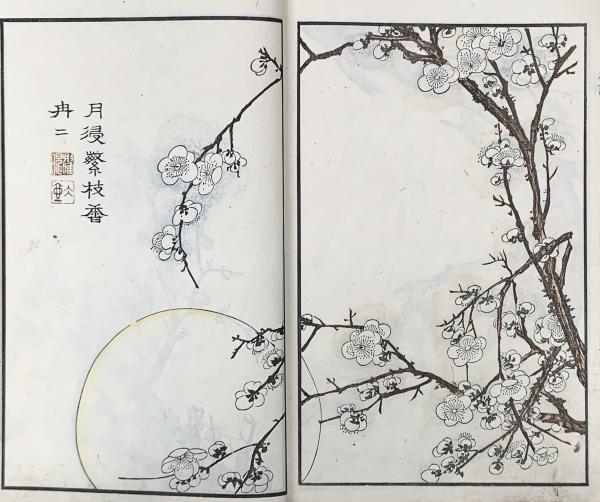 月浸繁枝香
冉二